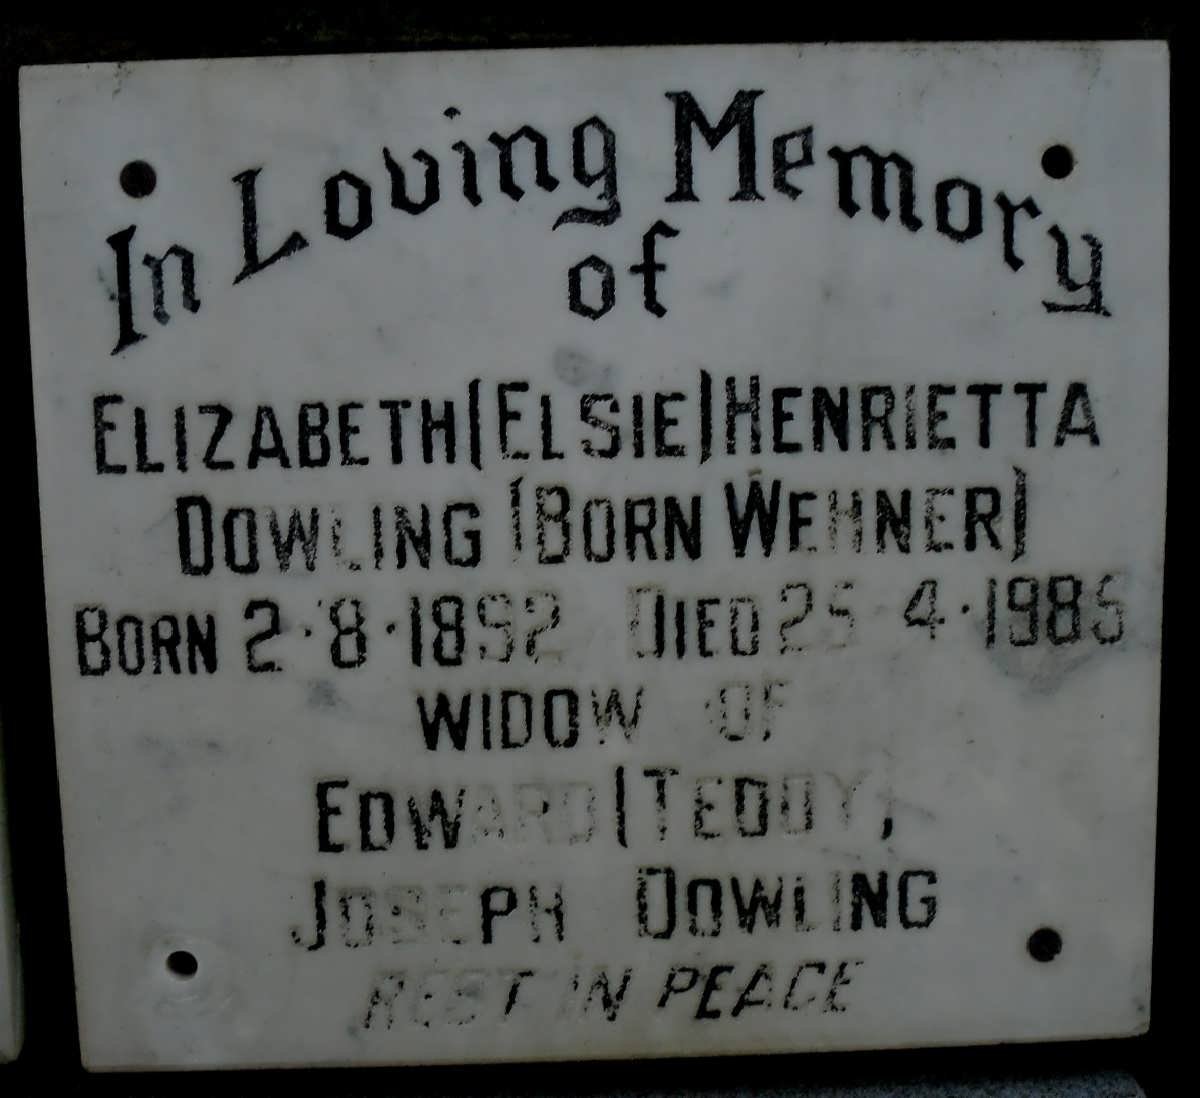 In Loving Memory
of
ELIZABETH (ELSIE) HENRIETTA
DOWLING (BORN WEHNER)
BORN 2·8·1892 DIED 25 4·1985
WIDOW OF
EDWARD (TEDDY)
JOSEPH DOWLING
REST IN PEACE